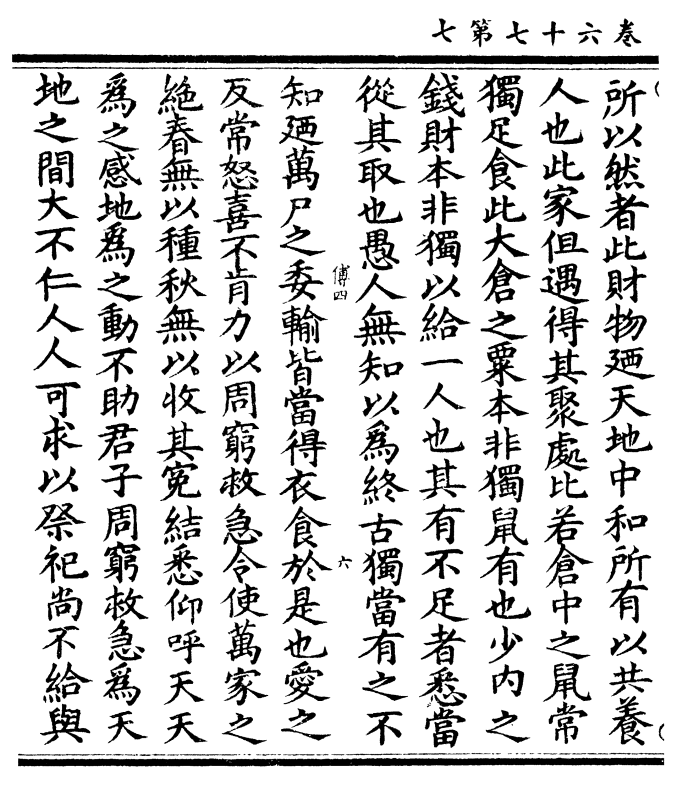 卷六十七第七
所以然者此財物廼天地中和所有以共養
人也此家但遇得其聚處比若倉中之鼠常
獨足食此大倉之粟本非獨鼠有也少內之
錢財本非獨以給一人也其有不足者悉當
從其取也愚人無知以爲終古獨當有之不
傅四
六
知廼萬尸之委輸皆當得衣食於是也愛之
反常怒喜不肯力以周窮救急令使萬家之
絶春無以種秋無以收其寃結悉仰呼天天
爲之感地爲之動不助君子周窮救急爲天
地之間大不仁人人可求以祭祀尚不給與